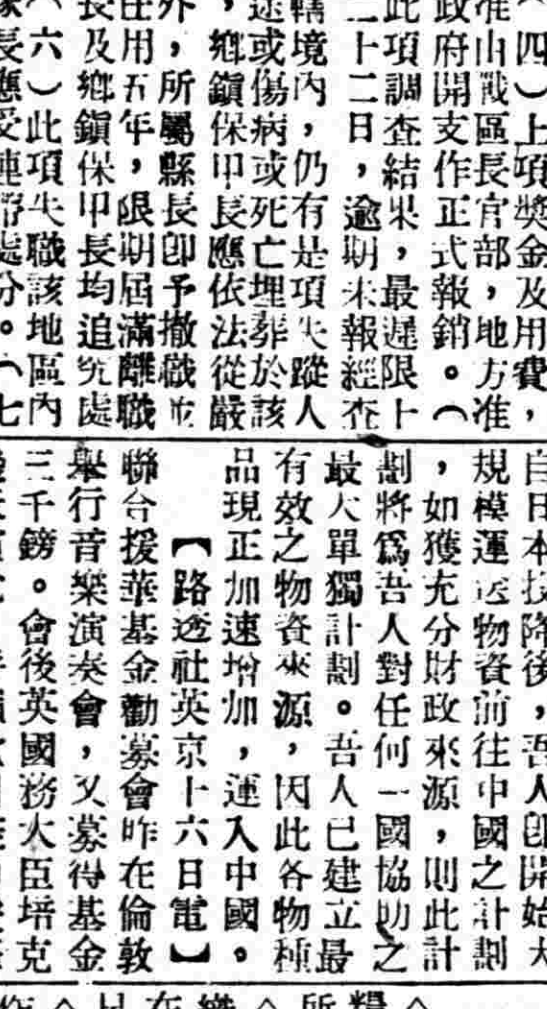 （四）上項獎金及用費，
准由戰區長官部，地方准
政府開支作正式報銷。（
此項調查結果，最遲限十
二十二日，逾期未報經查
轄境內，仍有是項失蹤人
或傷病或死亡埋葬於該
，鄉鎮保甲長應依法從嚴
外，所屬縣長卽予撤職並
任用五年，限期屆滿離職
長及鄉鎮保甲長均追究處
（六）此項失職該地區內
長應受連帶處分。（七
自日本投降後，吾人卽開始大
規模運送物資前往中國之計劃
，如獲充分財政來源，則此計
劃將爲吾人對任何一國協助之
最大單獨計劃。吾人已建立最
有效之物資來源，因此各物種
品現正加速增加，運入中國。
【路透社英京十六日電】
聯合援華基金勸募會昨在倫敦
舉行音樂演奏會，又募得基金
三千鎊。會後英國務大臣培克